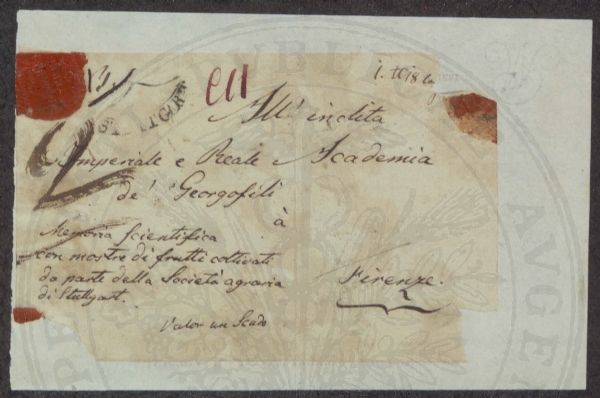 All' inclita
Imperiale e Reale Accademia
de' Georgofili
à
Firenze.
Memoria scientifica
con mostre di frutti coltivati
da parte della Società agraria
di Stuttgart.
Valor un Scudo